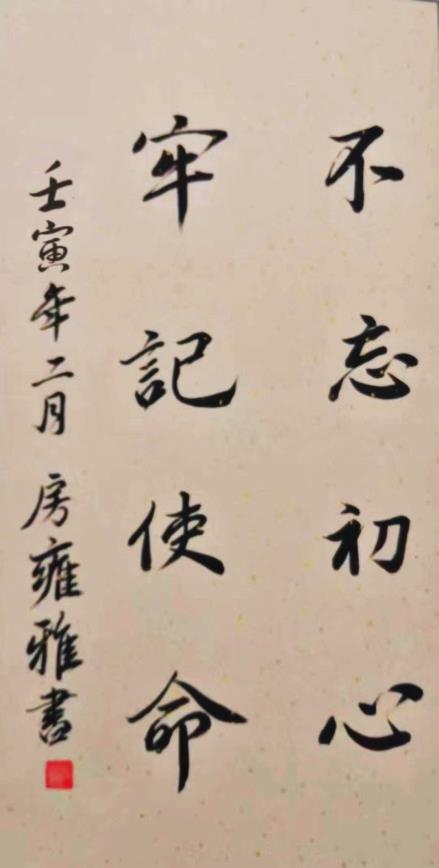 不忘初心
牢記使命
壬寅年二月 房雍雅書